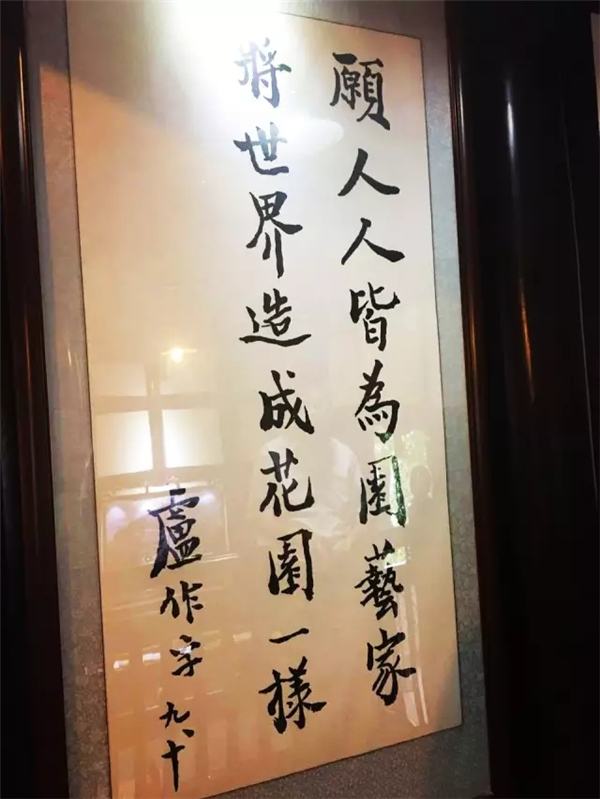 願人人皆為園藝家
將世界造成花園一樣
盧作孚 九、十